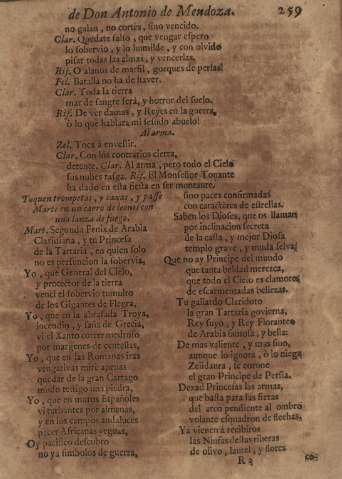 de Don Antonio de Mendoza. 259
no galan, no cortes, sino vencido.
Clar. Quedate falso, que vengar espero
lo sobervio, y lo humilde, y con olvido
pisar todas las almas, y vencerlas.
Rif. O alanos de marfil, gozques de perlas!
Fel. Batalla no ha de haver.
Clar. Toda la tierra
mar de sangre será, y horror del suelo.
Rif. De ver damas, y Reyes en la guerra,
ò lo que hablara mi sesudo abuelo!
Al arma.
Zel. Toca à envestir.
Clar. Con los contrarios cierra,
detente. Clar. Al arma, pero todo el Cielo
sus nubes rasga. Rif. El Monseñor Tonante
ha dado en esta fiesta en ser montante.
Toquen trompetas, y caxas, y passe
Marte en un carro de leones con
una lanza de fuego.
Mart. Segunda Fenix de Arabia
Claridiana, y tu Princesa
de la Tartaria, en quien solo
no es presuncion la sobervia,
Yo, que General del Cielo,
y protector de la tierra
vencì el sobervio tumulto
de los Gigantes de Flegra,
Yo, que en la abrasada Troya,
incendio, y saña de Grecia,
vi el Xanto correr
por margenes de centellas,
Yo, que en las Romanas iras
vengativas mirè apenas
quedar de la gran Cartago
mudo testigo una piedra,
Yo, que en manos Españolas
vi turbantes por almenas,
y en los campos andaluces
nacer Africanas yeguas,
Oy pacifico descubro
no ya simbolos de guerra,
sino paces confirmadas
con caracteres de estrellas.
Saben los Dioses, que os llaman
por inclinacion secreta
de la casta, y mejor Diosa
templo grave, y muda selva,
Que no ay Principe del mundo
que tanta beldad merezca,
que todo el Cielo es clamores
de escarmentadas bellezas.
Tu gallardo Claridoro
la gran Tartaria govierna,
Rey suyo, y Rey Florante
de Arabia famosa, y bella:
De mas valiente, y mas fino,
aunque lo ignora, ò lo niega
Zelidaura, se corone
el gran Principe de Persia.
Dexad Princesas las armas,
que basta para las fieras
del arco pendiente al ombro
volante esquadron de flechas,
Ya vienen à recibiros
las Ninfas destas riberas
de olivo, laurel, y flores
R 3